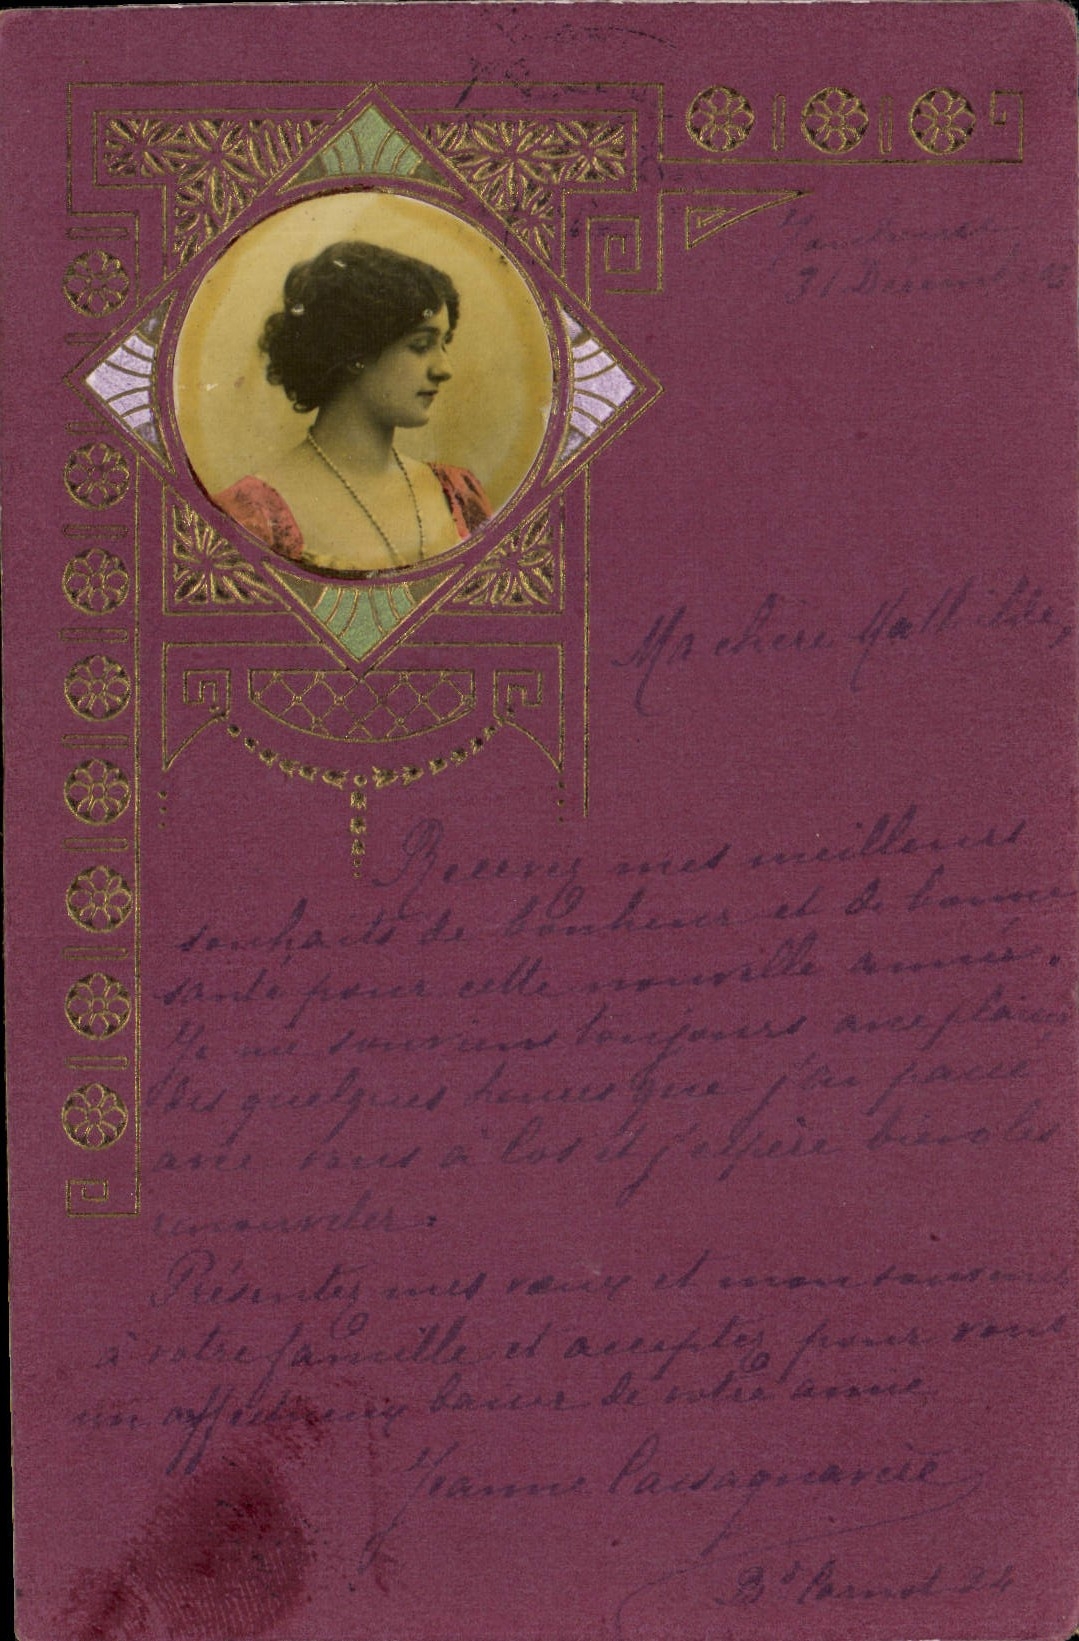 31 Decembre
Ma chère Mathilde,
Recevez mes meilleurs
souhaits de bonheur et de bonne
santé pour cette nouvelle année.
Je me souviens toujours avec plaisir
des quelques heures que j'ai passé
avec vous à Cos et j'espère bien les
renouveler.
Présentez mes vœux et mon souvenir
à votre famille et acceptez pour vous
un affectueux baiser de votre amie
Jeanne
Bd Carnot 24